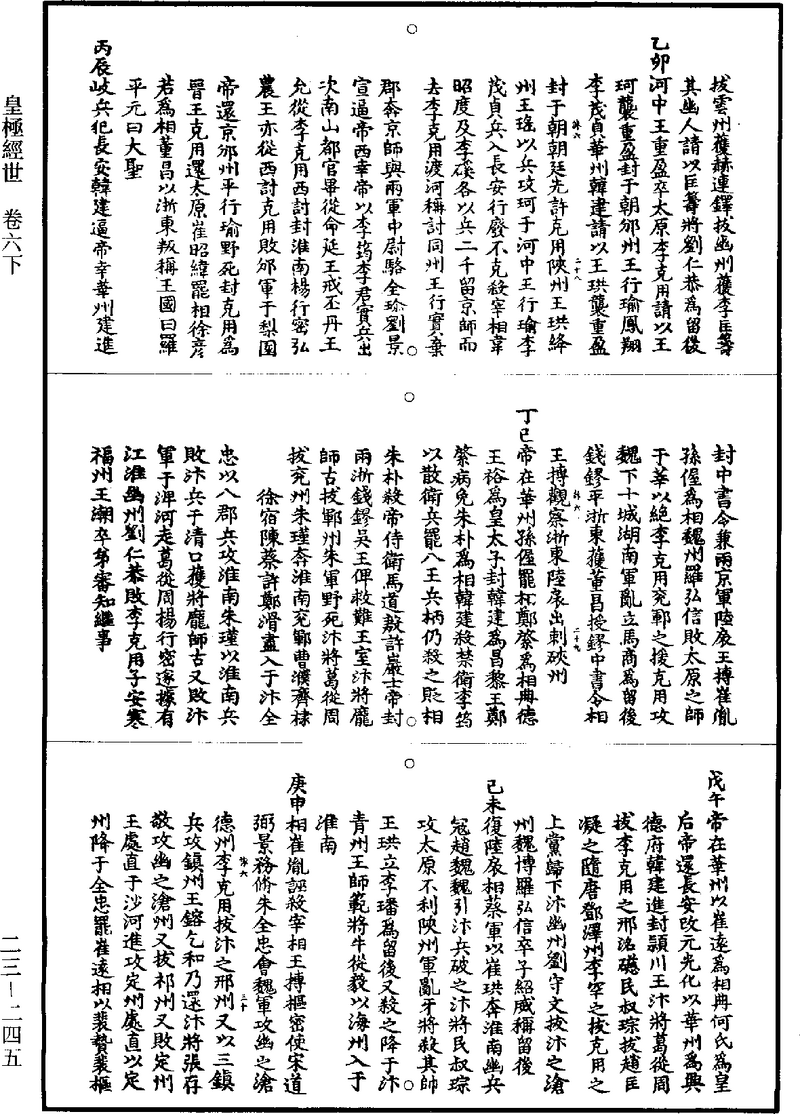 皇極經世　卷六下
二三—二四五
拔雲州獲赫連鐸拔幽州獲李匡籌
其幽人請以匡籌將劉仁恭爲留後
乙卯河中王重盈卒太原李克用請以王
珂襲重盈封于朝邠州王行瑜鳳翔
李茂貞華州韓建請以王珙襲重盈
封于朝朝廷先許克用陝州王珙絳
州王瑤以兵攻珂于河中王行瑜李
茂貞兵入長安行廢不克殺宰相韋
昭度及李磎各以兵二千留京師而
去李克用渡河稱討同州王行實棄
郡奔京師與兩軍中尉駱全瓘劉景
宣逼帝西幸帝以李筠李君實兵出
次南山都官畢從命延王戒丕丹王
允從李克用西討封淮南楊行密弘
農王亦從西討克用敗邠軍于梨園
帝還京邠州平行瑜野死封克用爲
晉王克用還太原崔昭緯罷相徐彥
若爲相董昌以浙東叛稱王國曰羅
平元曰大聖
丙辰岐兵犯長安韓建逼帝幸華州建進
封中書令兼兩京軍陸扆王摶崔胤
孫偓爲相魏州羅弘信敗太原之師
于莘以絶李克用兗鄆之援克用攻
魏下十城湖南軍亂立馬商爲留後
錢鏐平浙東獲董昌授鏐中書令相
王摶觀察浙東陸扆出刺硤州
丁巳帝在華州孫偓罷相鄭綮爲相冊德
王裕爲皇太子封韓建爲昌黎王鄭
綮病免朱朴爲相韓建殺禁衛李筠
以散衛兵罷八王兵柄仍殺之貶相
朱朴殺帝侍衛馬道殷許巖士帝封
兩浙錢鏐吳王俾救難王室汴將龐
師古拔鄆州朱軍野死汴將葛從周
拔兗州朱瑾奔淮南兗鄆曹濮齊棣
徐宿陳蔡許鄭滑盡入于汴全
忠以八郡兵攻淮南朱瑾以淮南兵
敗汴兵于清口獲將龐師古又敗汴
軍于渒河走葛從周楊行密遂據有
江淮幽州劉仁恭敗李克用于安塞
福州王潮卒弟審知繼事
戊午帝在華州以崔遠爲相冊何氏爲皇
后帝還長安改元光化以華州爲興
德府韓建進封潁川王汴將葛從周
拔李克用之邢洺磁民叔琮拔趙匡
凝之隨唐鄧澤州李罕之拔克用之
上黨歸下汴幽州劉守文拔汴之滄
州魏博羅弘信卒子紹威稱留後
己未復陸扆相蔡軍以崔珙奔淮南幽兵
冦趙魏魏引汴兵破之汴將民叔琮
攻太原不利陝州軍亂牙將殺其帥
王珙立李璠爲留後又殺之降于汴
青州王師範將牛從毅以海州入于
淮南
庚申相崔胤誣殺宰相王摶樞密使宋道
弼景務脩朱全忠會魏軍攻幽之滄
德州李克用拔汴之邢州又以三鎮
兵攻鎮州王鎔乞和乃還汴將張存
敬攻幽之滄州又拔祁州又敗定州
王處直于沙河進攻定州處直以定
州降于全忠罷崔遠相以裴贄裴樞